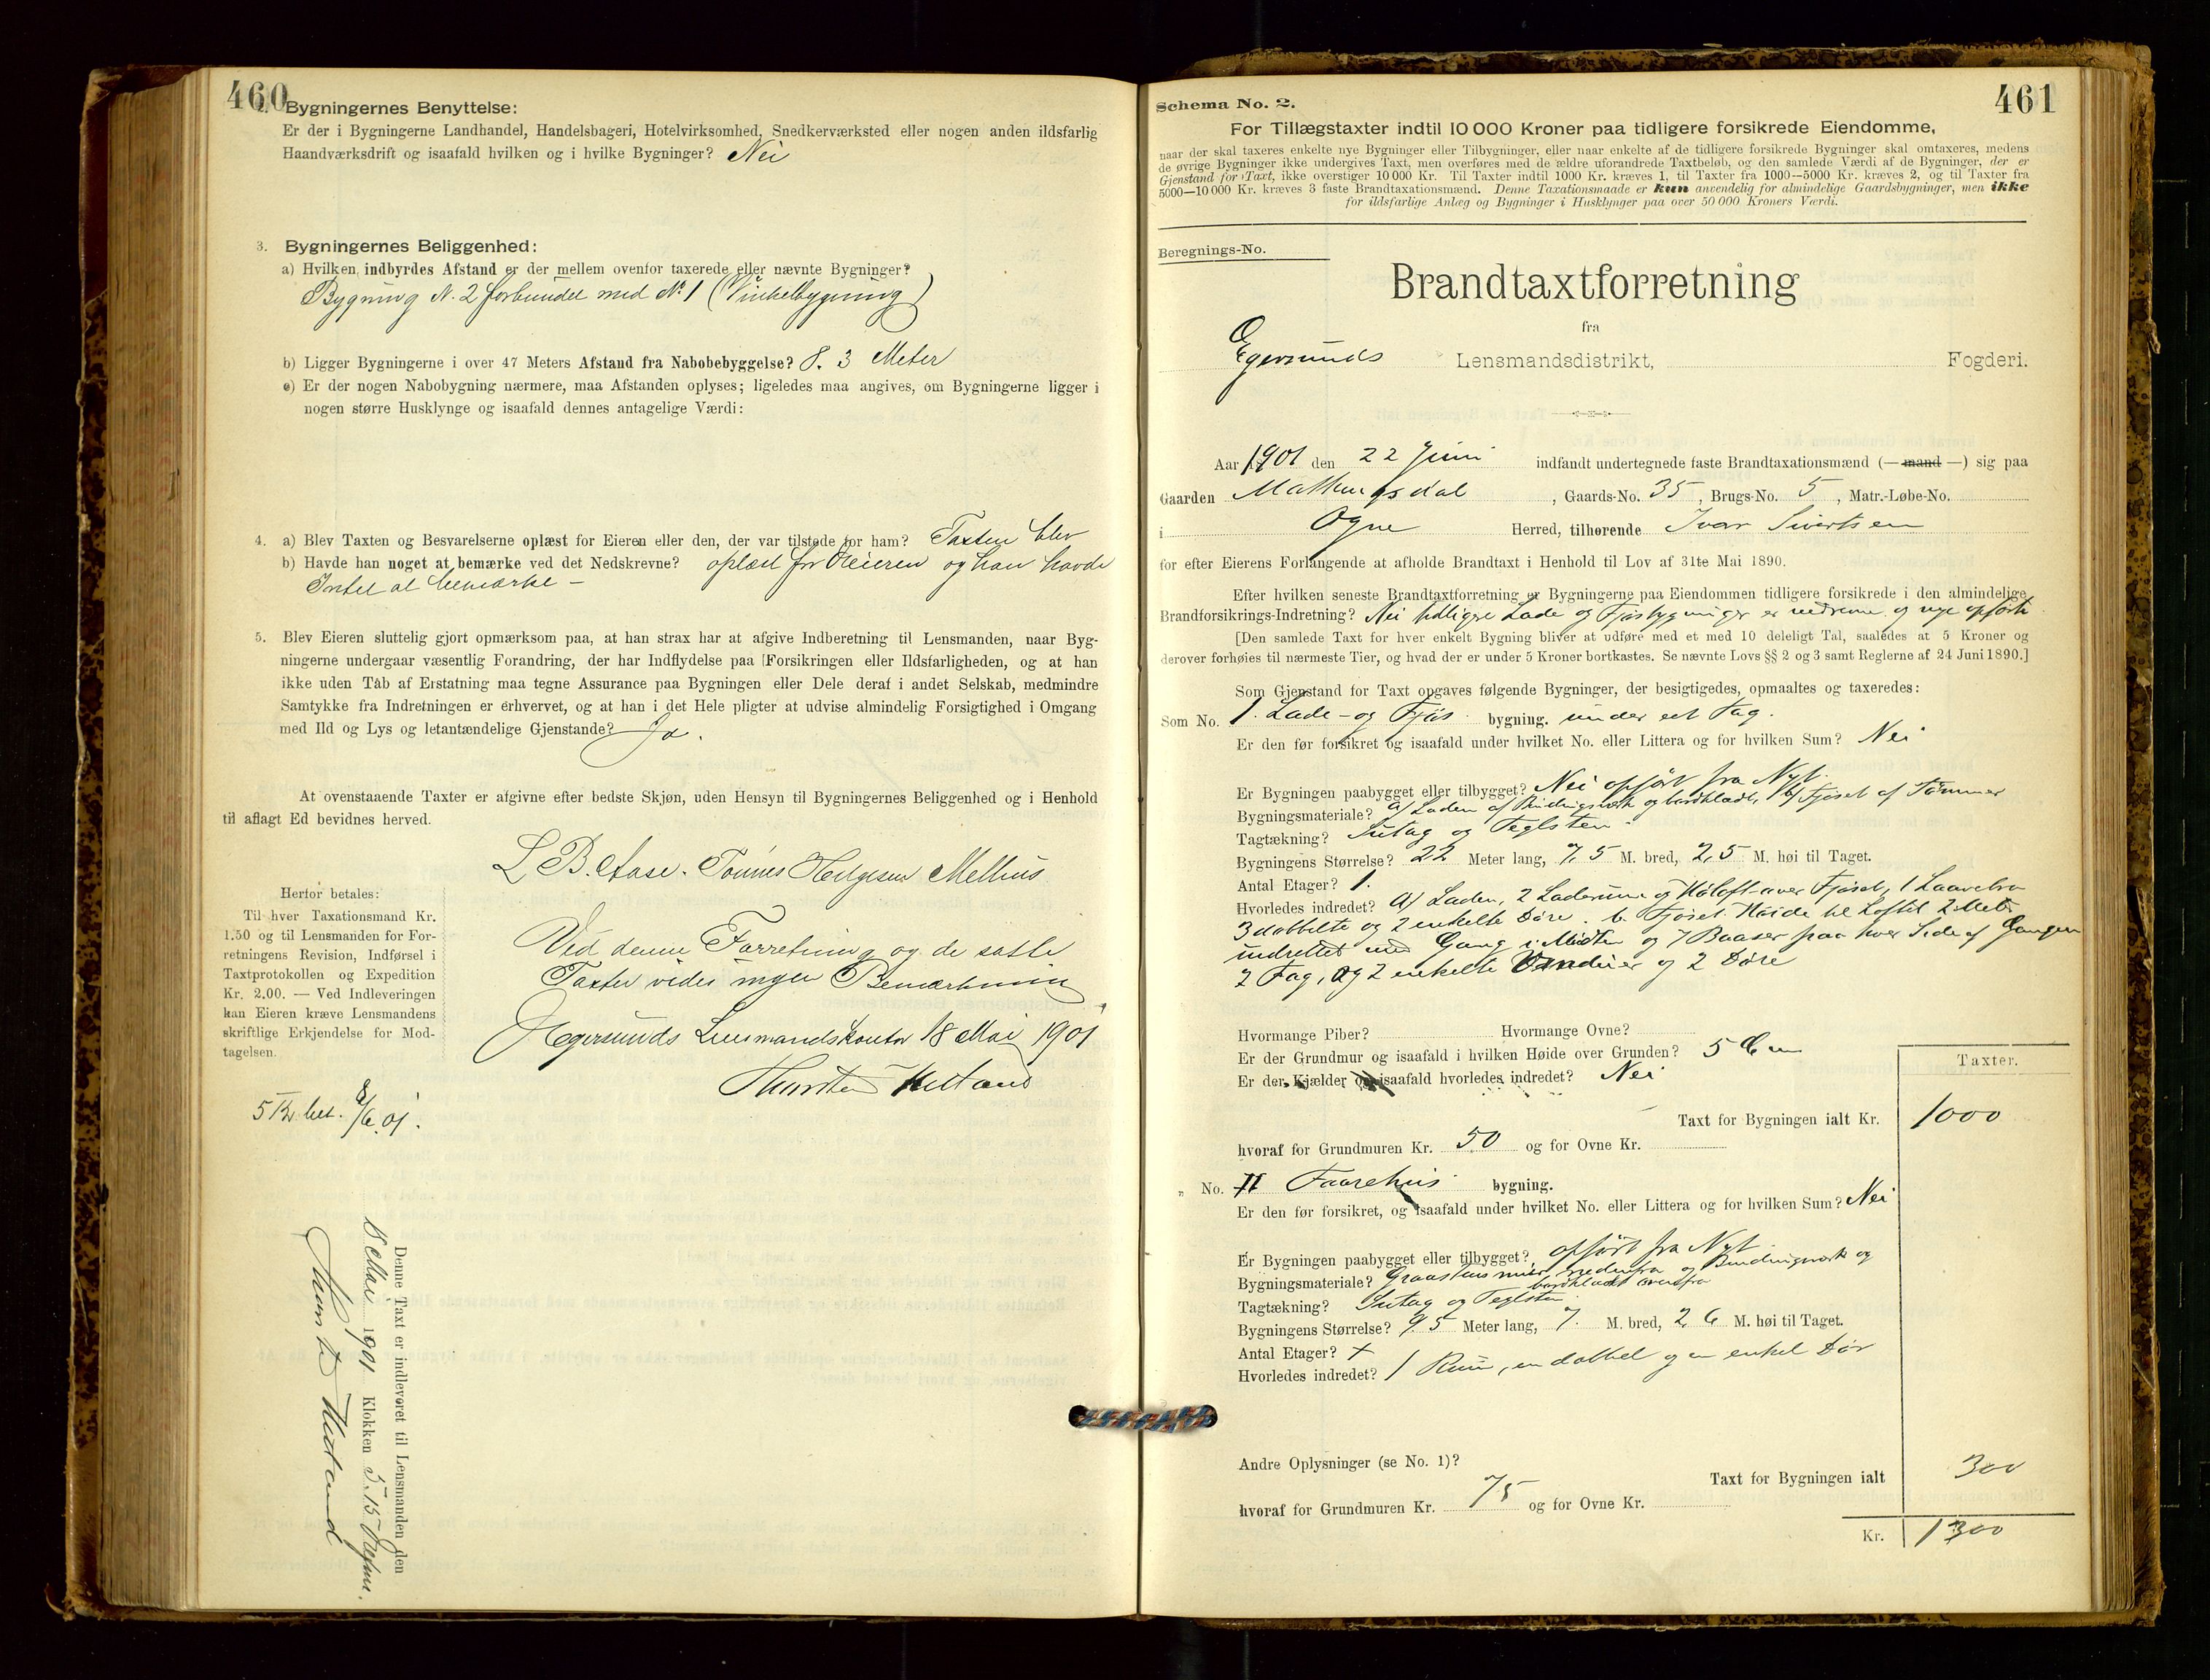 460
2. Bygningernes Benyttelse:
Er der i Bygningerne Landhandel, Handelsbageri, Hotelvirksomhed, Snedkerværksted eller nogen anden ildsfarlig
Haandværksdrift og isaafald hvilken og i hvilke Bygninger? Nei
3. Bygningernes Beliggenhed:
a) Hvilken indbyrdes Afstand er der mellem ovenfor taxerede eller nævnte Bygninger?
Bygning N. 2 forbundet med No 1 (Vinkelbygning)
b) Ligger Bygningerne i over 47 Meters Afstand fra Nabobebyggelse? 8. 3 Meter
c) Er der nogen Nabobygning nærmere, maa Afstanden oplyses; ligeledes maa angives, om Bygningerne ligger i
nogen større Husklynge og isaafald dennes antagelige Værdi:
4. a) Blev Taxten og Besvarelserne oplæst for Eieren eller den, der var tilstede for ham? Taxten blev
b) Havde han noget at bemærke ved det Nedskrevne? oplæst for Eieren og han havde
Intet at bemærke –
5. Blev Eieren sluttelig gjort opmærksom paa, at han strax har at afgive Indberetning til Lensmanden, naar Byg-
ningerne undergaar væsentlig Forandring, der har Indflydelse paa Forsikringen eller Ildsfarligheden, og at han
ikke uden Tab af Erstatning maa tegne Assurance paa Bygningen eller Dele deraf i andet Selskab, medmindre
Samtykke fra Indretningen er erhvervet, og at han i det Hele pligter at udvise almindelig Forsigtighed i Omgang
med Ild og Lys og letantændelige Gjenstande? Ja.
At ovenstaaende Taxter er afgivne efter bedste Skjøn, uden Hensyn til Bygningernes Beliggenhed og i Henhold
til aflagt Ed bevidnes herved.
L B. Aase. Tønnes Helgesen Mellius
Herfor betales:
Til hver Taxationsmand Kr.
1.50 og til Lensmanden for For-
retningens Revision, Indførsel i
Taxtprotokollen og Expedition
Kr. 2.00. — Ved Indleveringen
kan Eieren kræve Lensmandens
skriftlige Erkjendelse for Mod-
tagelsen.
Ved denne Forretning og de satte
Taxter vides ingen Bemærkning
Egersunds Lensmandskontor 18 Mai 1901
Thorsten Hetland
5 Kr. bet. 8/6 01.
Denne Taxt er indleveret til Lensmanden den
18 Mai 1901 Klokken 5.15
Thorsten Hetland
461
Schema No. 2.
For Tillægstaxter indtil 10 000 Kroner paa tidligere forsikrede Eiendomme,
naar der skal taxeres enkelte nye Bygninger eller Tilbygninger, eller naar enkelte af de tidligere forsikrede Bygninger skal omtaxeres, medens
de øvrige Bygninger ikke undergives Taxt, men overføres med de ældre uforandrede Taxtbeløb, og den samlede Værdi af de Bygninger, der er
Gjenstand for Taxt, ikke overstiger 10 000 Kr. Til Taxter indtil 1000 Kr. kræves 1, til Taxter fra 1000—5000 Kr. kræves 2, og til Taxter fra
5000—10 000 Kr. kræves 3 faste Brandtaxationsmænd. Denne Taxationsmaade er kun anvendelig for almindelige Gaardsbygninger, men ikke
for ildsfarlige Anlæg og Bygninger i Husklynger paa over 50 000 Kroners Værdi.
Beregnings-No.
Brandtaxtforretning
fra
Egersunds Lensmandsdistrikt, Fogderi.
Aar 1901 den 22 Juni indfandt undertegnede faste Brandtaxationsmænd (—mand—) sig paa
Gaarden Mathingsdal, Gaards-No. 35, Brugs-No. 5, Matr.-Løbe-No.
i Ogne Herred, tilhørende Ivar Sivertsen
for efter Eierens Forlangende at afholde Brandtaxt i Henhold til Lov af 31te Mai 1890.
Efter hvilken seneste Brandtaxtforretning er Bygningerne paa Eiendommen tidligere forsikrede i den almindelige
Brandforsikrings-Indretning? Nei tidligere Lade og Fjøsbygninger er nedrevne og nye opførte
[Den samlede Taxt for hver enkelt Bygning bliver at udføre med et med 10 deleligt Tal, saaledes at 5 Kroner og
derover forhøies til nærmeste Tier, og hvad der er under 5 Kroner bortkastes. Se nævnte Lovs §§ 2 og 3 samt Reglerne af 24 Juni 1890.]
Som Gjenstand for Taxt opgaves følgende Bygninger, der besigtigedes, opmaaltes og taxeredes:
Som No. 1. Lade- og Fjøs bygning. under eet Tag.
Er den før forsikret og isaafald under hvilket No. eller Littera og for hvilken Sum? Nei
Er Bygningen paabygget eller tilbygget? Nei opført fra Nyt.
Bygningsmateriale? a/ Laden af Bindingsverk og bordklædt, b/ Fjøset af Tømmer
Tagtækning? Sutag og Teglsten
Bygningens Størrelse? 22 Meter lang, 7,5 M. bred, 2,5 M. høi til Taget.
Antal Etager? 1.
Hvorledes indredet? a/ Laden, 2 Laderum og Høloft over Fjøset, 1 Laavebro
3 dobbelte og 2 enkelte Døre. b. Fjøset Høide til Loftet 2 Meter
indrettet med Gang i Midten og 7 Baaser paa hver Side af Gangen
2 Fag, og 2 enkelte Vinduer og 2 Døre
Hvormange Piber? Hvormange Ovne?
Er der Grundmur og isaafald i hvilken Høide over Grunden? 5 Cm
Er der Kjælder og isaafald hvorledes indredet? Nei
Taxter.
Taxt for Bygningen ialt Kr. 1000
hvoraf for Grundmuren Kr. 50 og for Ovne Kr.
„ No. II Faarehus bygning.
Er den før forsikret, og isaafald under hvilket No. eller Littera og for hvilken Sum? Nei
Er Bygningen paabygget eller tilbygget? opført fra Nyt
Bygningsmateriale? Graastensmur nedenfra og Bindingsverk og
bordklædt ovenfra
Tagtækning? Sutag og Teglsten
Bygningens Størrelse? 9,5 Meter lang, 7. M. bred, 2,6 M. høi til Taget.
Antal Etager?
Hvorledes indredet? 1 Rum, en dobbel og en enkel Dør
Andre Oplysninger (se No. 1)?
Taxt for Bygningen ialt 300
hvoraf for Grundmuren Kr. 75 og for Ovne Kr.
Kr. 1300